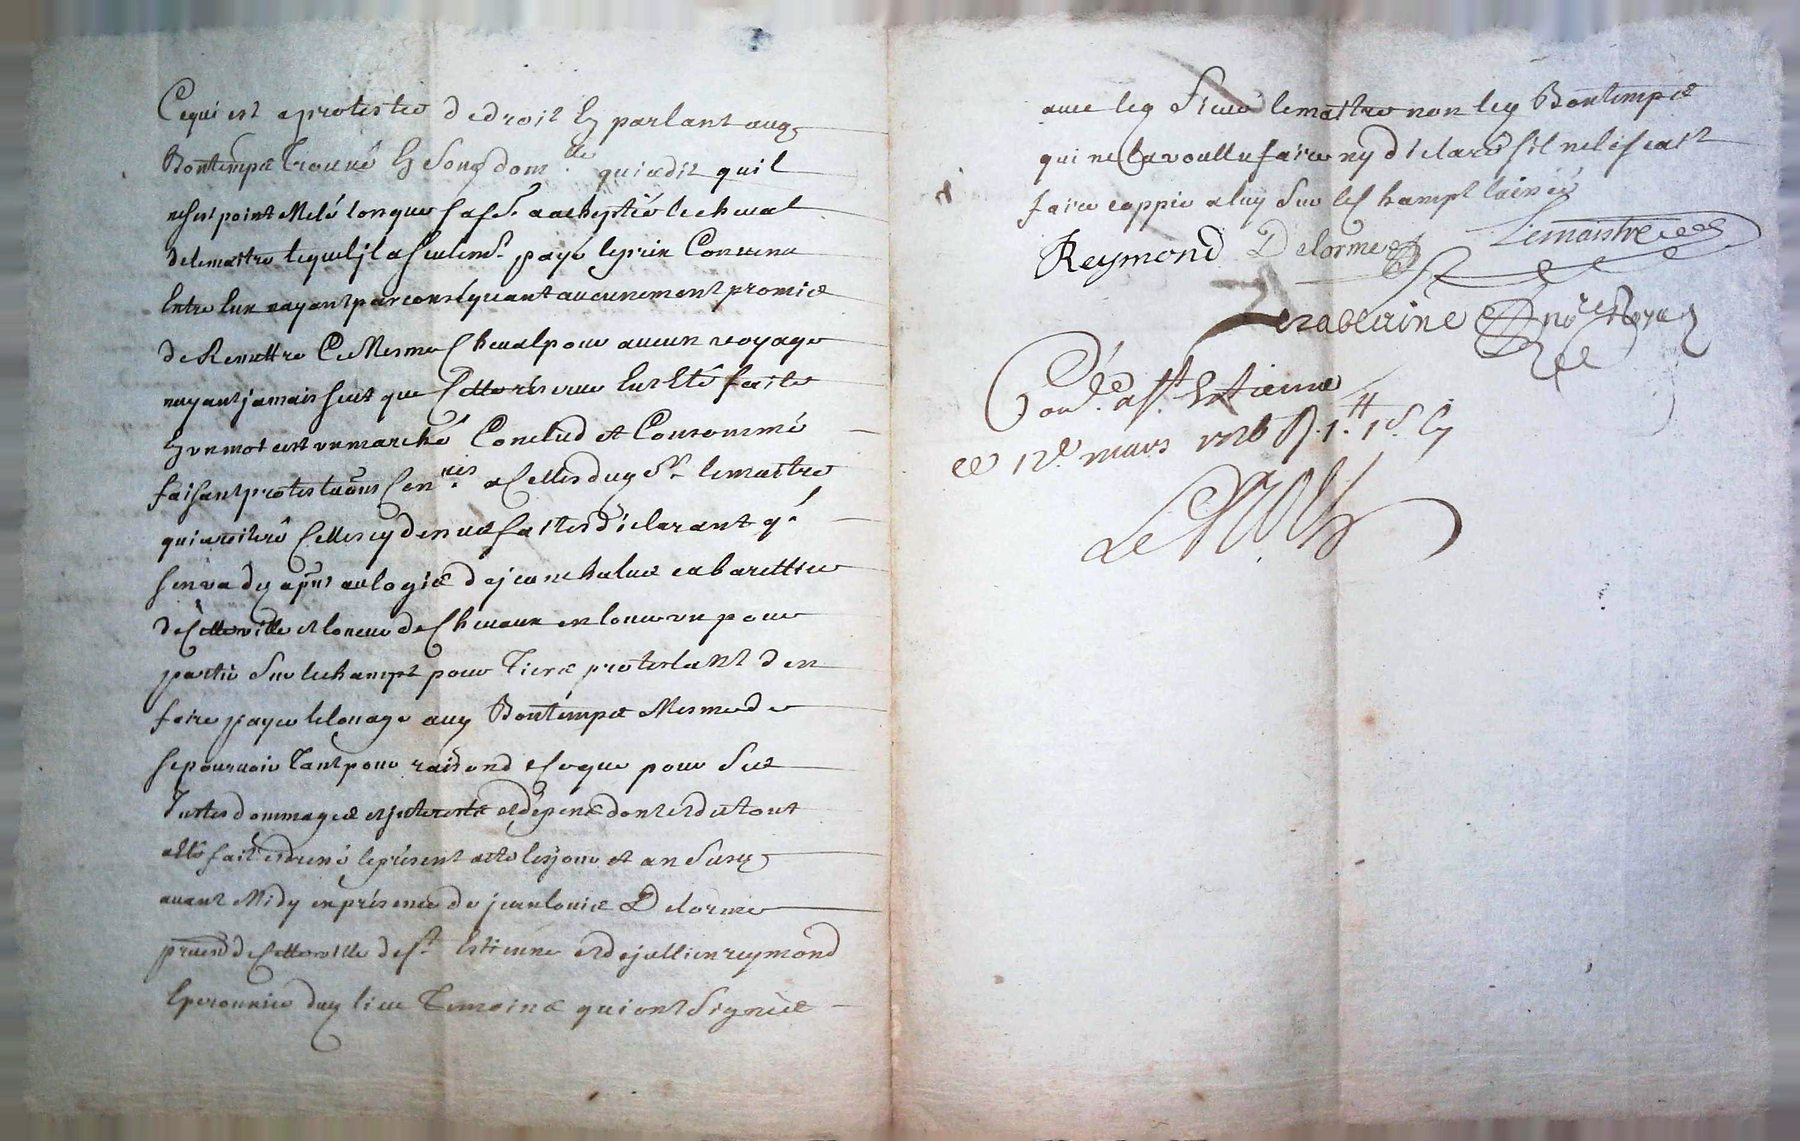 Ce qui est a protester de droit Et parlant aud
Bontemps trouvé En Son dom.lle qui a dit quil
nest point Melé lorsque a achepté le cheval
de lemaitre lequel jl a seulem.t payé le prix Convenu
Entre Eux nayant par consequant aucunement promis
de Remettre Ce Mesme Cheval pour aucun voyage
nayant jamais sceu que Cette réserve Eut Eté faite
En un mot cest un marché Conclud et Consommé
faisant protestaons Con.res a Celles dud S.r lemaitre
qui a reiteré Celles cy dessus faites déclarant q.
sen va dez apnt au logis de jean cabarettier
de Cette ville et loueur de Chevaux en louer un pour
partir Sur le champt pour Tiers protestant den
faire payer le louage aud Bontemps Mesme de
se pourvoir Tant pour raison de Ce que pour Ses
Justes dommages et jnterests et dépens dont et du tout
a esté fait et dressé le présent acte les jour et an Susd
avant Midy en présence de jean louis Delorme
prad de Cette ville de S.t Estienne et de jullien reymond
Eperonnier dud lieu Temoins qui ont Signés
avec led Sieur lemaitre non led Bontemps
qui ne la voullu faire ny declarer sil ne le scait
faire coppie a luy Sur le champt laissé
Reymond Delorme Lemaistre
no.re Royal
Con.lé a S.t Estienne
ce 12.e mars 1726 R. 1.# 1.s